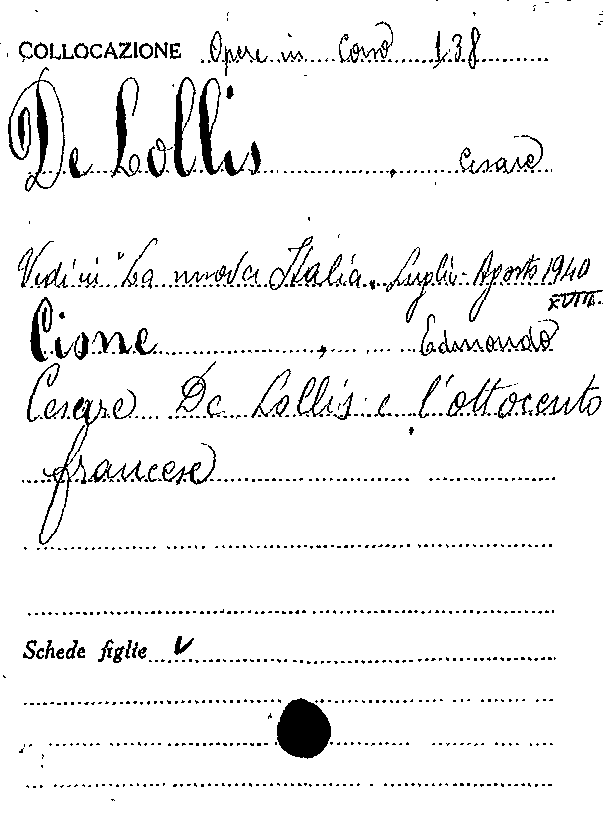 COLLOCAZIONE Opere in Corso 138
De Lollis, Cesare
Vedi in "La nuova Italia. Luglio-Agosto 1940
XVIII.
Cione, Edmondo
Cesare De Lollis e l'ottocento
francese
Schede figlie V